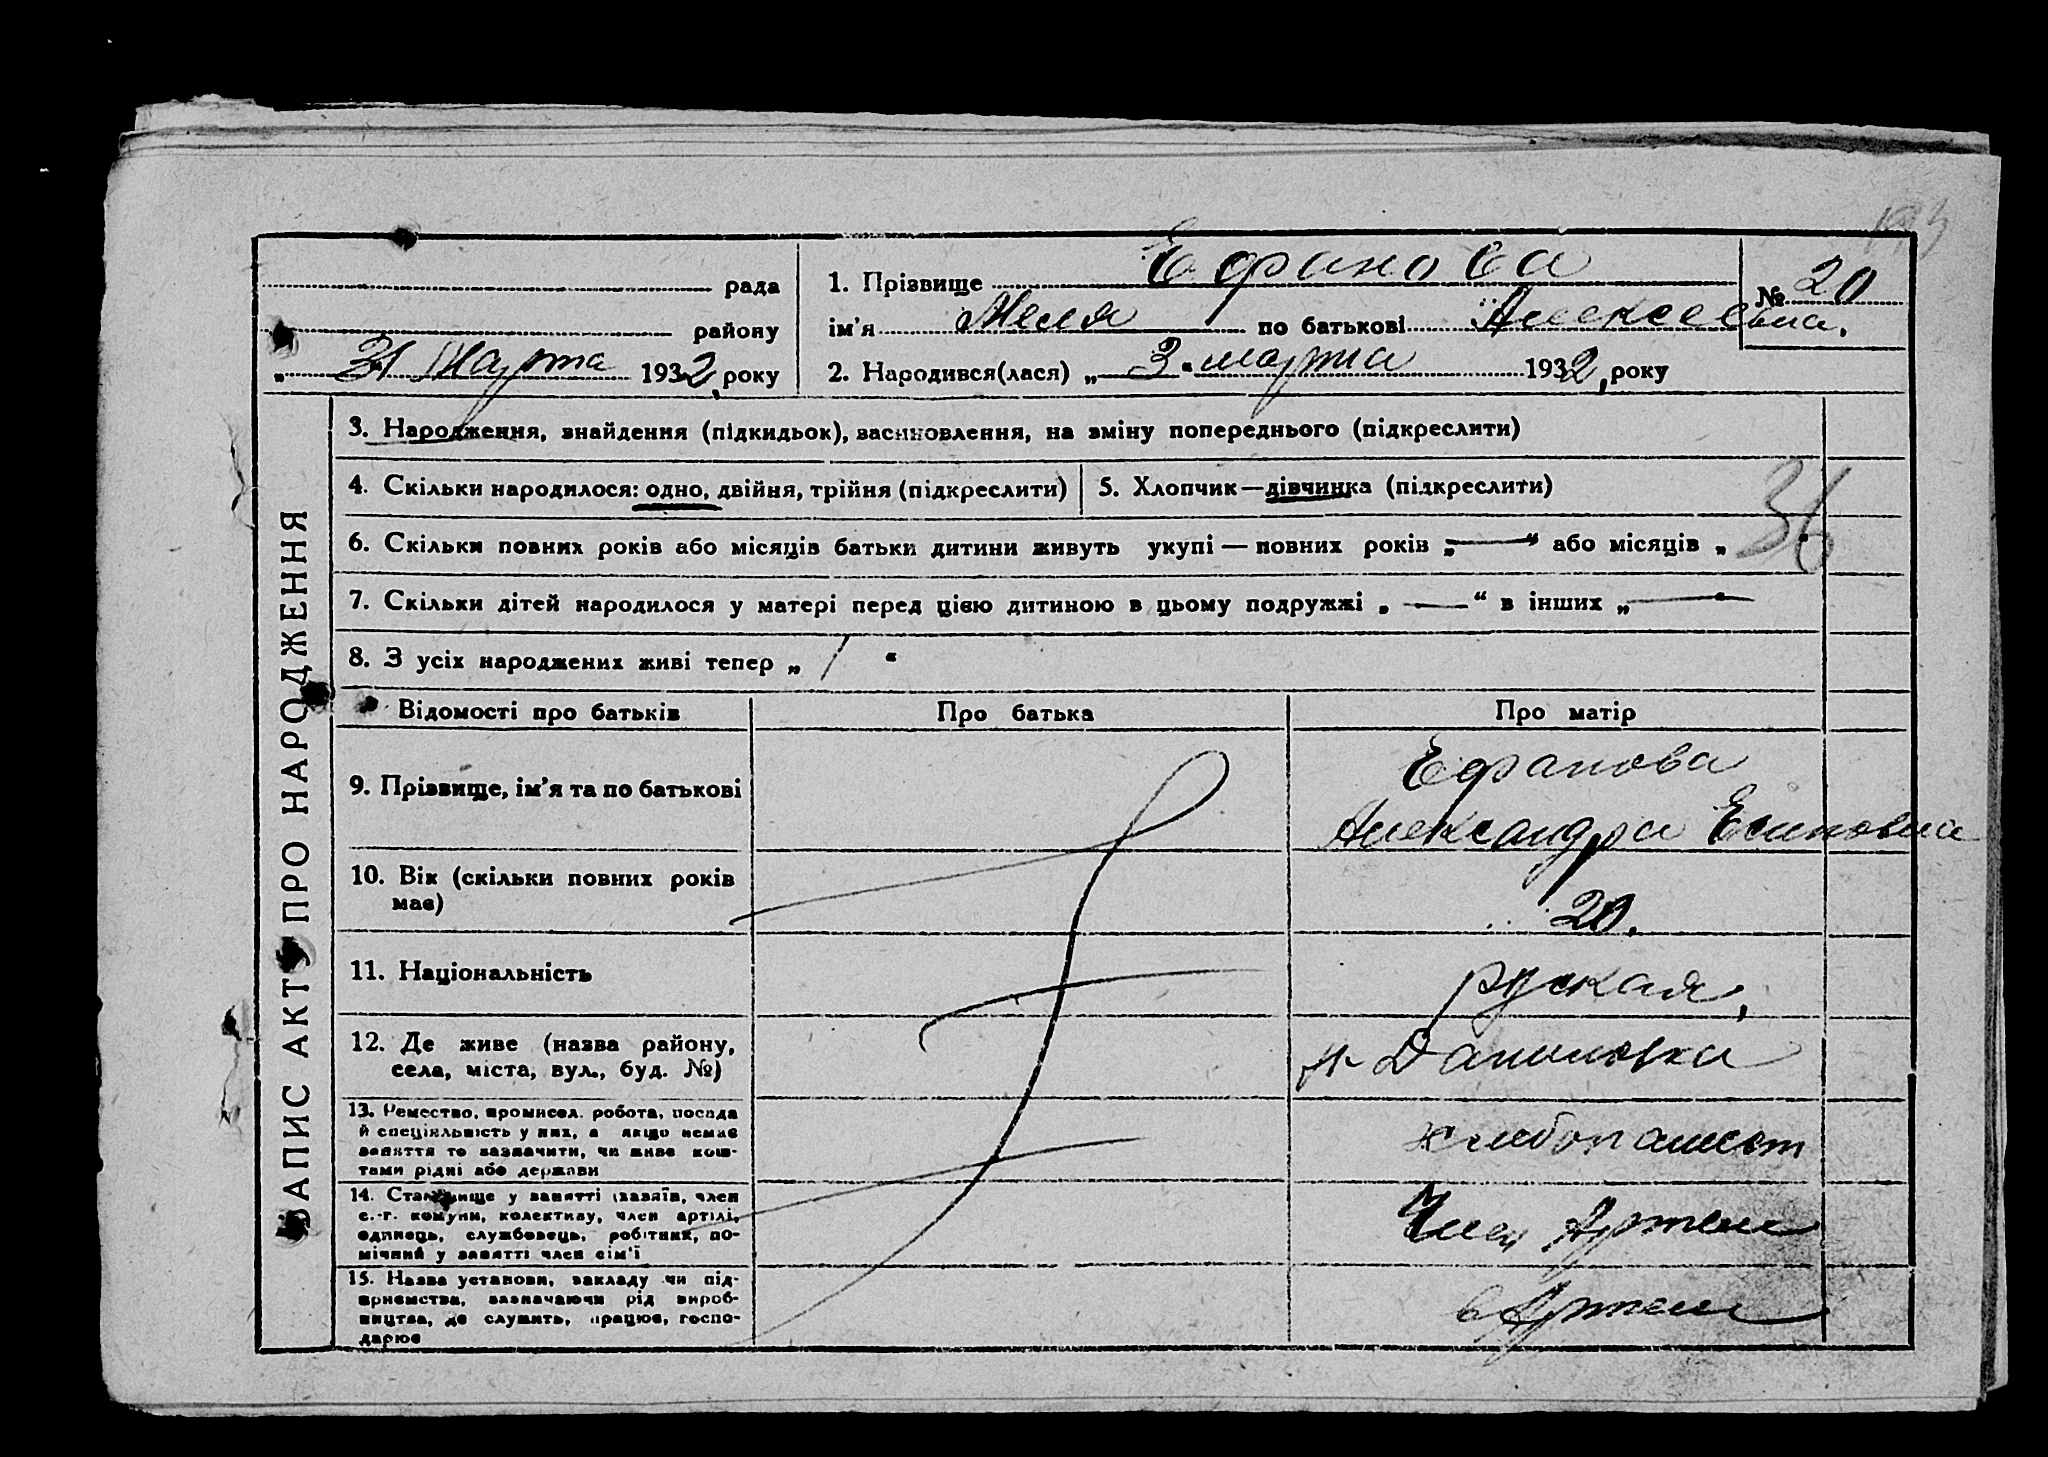 рада
1. Прізвище Ефанова
№ 20
району
ім'я по батькові Алексеевна.
„31 Марта 1932, року
2. Народився(лася) „3" марта 1932, року
ЗАПИС АКТ ПРО НАРОДЖЕННЯ
3. Народження, знайдення (підкидьок), засиновлення, на зміну попереднього (підкреслити)
4. Скільки народилося: одно, двійня, трійня (підкреслити)
5. Хлопчик—дівчинка (підкреслити)
6. Скільки повних років або місяців батьки дитини живуть укупі — повних років „—" або місяців „ "
36
7. Скільки дітей народилося у матері перед цією дитиною в цьому подружжі „—" в інших „—"
8. З усіх народжених живі тепер „ 1 "
Відомості про батьків
Про батька
Про матір
9. Прізвище, ім'я та по батькові
Ефанова
Александра
10. Вік (скільки повних років
має)
20.
11. Національність
руская,
12. Де живе (назва району,
села, міста, вул., буд. №)
Даниловка
13. Ремество, промисел, робота, посада
й спеціяльність у них, а якщо немає
заняття то зазначити, чи живе кош-
тами рідні або держави
хлебопашест
14. Становище у занятті (хазяїн, член
с.-г. комуни, колективу, член артілі,
одинець, службовець, робітник, по-
мічний у занятті член сім'ї
Член Артели
15. Назва установи, закладу чи під-
приємства, зазначаючи рід вироб-
ництва, де служить, працює, госпо-
дарює
в Артели